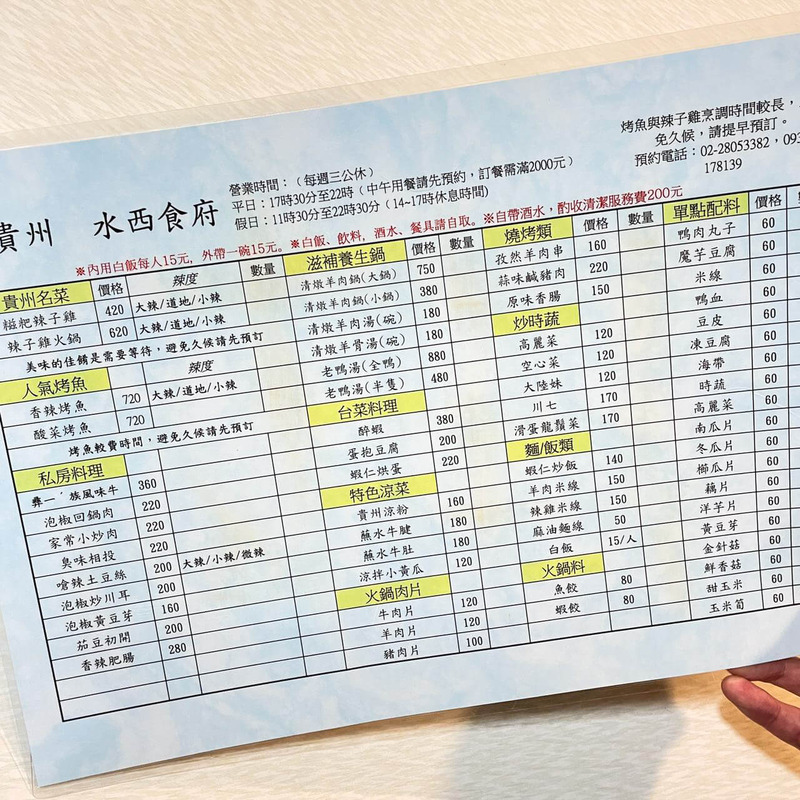 貴州 水西食府
營業時間：（每週三公休）
平日：17時30分至22時（中午用餐請先預約，訂餐需滿2000元）
假日：11時30分至22時30分（14-17休息時間）
烤魚與辣子雞烹調時間較長，
免久候，請提早預訂。
預約電話：02-28053382，093
178139
※內用白飯每人15元，外帶一碗15元。※白飯、飲料，酒水、餐具請自取。※自帶酒水，酌收清潔服務費200元
貴州名菜 價格 辣度 數量
糍粑辣子雞 420 大辣/道地/小辣
辣子雞火鍋 620 大辣/道地/小辣
美味的佳餚是需要等待，避免久候請先預訂
人氣烤魚 辣度
香辣烤魚 720 大辣/道地/小辣
酸菜烤魚 720
烤魚較費時間，避免久候請先預訂
私房料理
彝一ˊ族風味牛 360
泡椒回鍋肉 220
家常小炒肉 220
臭味相投 220
嗆辣土豆絲 200 大辣/小辣/微辣
泡椒炒川耳 200
泡椒黃豆芽 160
茄豆初開 200
香辣肥腸 280
滋補養生鍋 價格 數量
清燉羊肉鍋(大鍋) 750
清燉羊肉鍋(小鍋) 380
清燉羊肉湯(碗) 180
清燉羊骨湯(碗) 180
老鴨湯(全鴨) 880
老鴨湯(半隻) 480
台菜料理
醉蝦 380
蛋抱豆腐 200
蝦仁烘蛋 220
特色涼菜
貴州涼粉 160
蘸水牛腱 180
蘸水牛肚 180
涼拌小黃瓜 120
火鍋肉片
牛肉片 120
羊肉片 120
豬肉片 100
燒烤類 價格 數量
孜然羊肉串 160
蒜味鹹豬肉 220
原味香腸 150
炒時蔬
高麗菜 120
空心菜 120
大陸妹 120
川七 170
滑蛋龍鬚菜 170
麵/飯類
蝦仁炒飯 140
羊肉米線 150
辣雞米線 150
麻油麵線 50
白飯 15/人
火鍋料
魚餃 80
蝦餃 80
單點配料 價格
鴨肉丸子 60
魔芋豆腐 60
米線 60
鴨血 60
豆皮 60
凍豆腐 60
海帶 60
時蔬 60
高麗菜 60
南瓜片 60
冬瓜片 60
櫛瓜片 60
藕片 60
洋芋片 60
黃豆芽 60
金針菇 60
鮮香菇 60
甜玉米 60
玉米筍 60